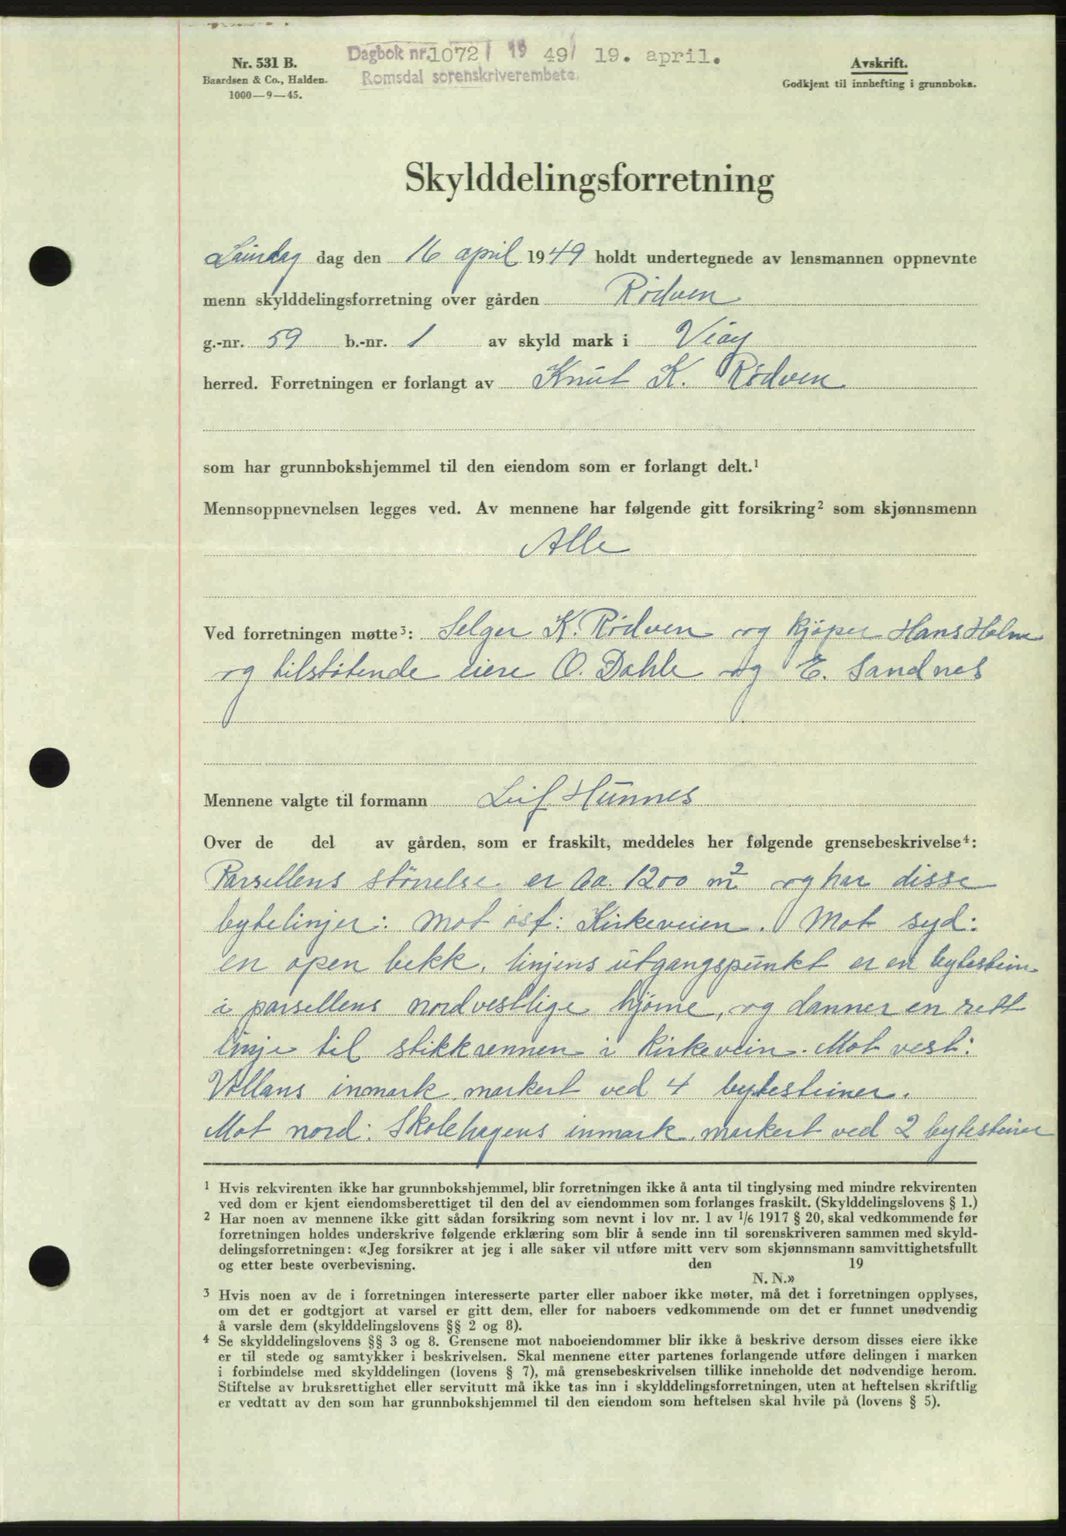 Nr. 531 B.
Baardsen & Co., Halden.
1000—9—45.
Dagbok nr. 1072 / 19 49 / 19. april.
Romsdal sorenskriverembete.
Avskrift.
Godkjent til innhefting i grunnboka.
Skylddelingsforretning
dag den 16 april 1949 holdt undertegnede av lensmannen oppnevnte
menn skylddelingsforretning over gården Rödven
g.-nr. 59 b.-nr. 1 av skyld mark i Vöy
herred. Forretningen er forlangt av Knut K. Rödven
som har grunnbokshjemmel til den eiendom som er forlangt delt.¹
Mennsoppnevnelsen legges ved. Av mennene har følgende gitt forsikring² som skjønnsmenn
Alle
Ved forretningen møtte³: Selger K. Rödven og kjöper Hans Holm
og tilstötende eiere O. Dahle og E. Sandnes
Mennene valgte til formann Leif Hunnes
Over de del av gården, som er fraskilt, meddeles her følgende grensebeskrivelse⁴:
Parsellens störrelse er ca. 1200 m² og har disse
bytelinjer: Mot öst: Kirkeveien. Mot syd:
en open bekk, linjens utgangspunkt er en bytestein
i parsellens nordvestlige hjörne, og danner en rett
linje til stikkrennen i kirkevein. Mot vest:
Vollans inmark markert ved 4 bytesteiner.
Mot nord: Skolehagens inmark, markert ved 2 bytesteiner
¹ Hvis rekvirenten ikke har grunnbokshjemmel, blir forretningen ikke å anta til tinglysing med mindre rekvirenten
ved dom er kjent eiendomsberettiget til den del av eiendommen som forlanges fraskilt. (Skylddelingslovens § 1.)
² Har noen av mennene ikke gitt sådan forsikring som nevnt i lov nr. 1 av 1/6 1917 § 20, skal vedkommende før
forretningen holdes underskrive følgende erklæring som blir å sende inn til sorenskriveren sammen med skyld-
delingsforretningen: «Jeg forsikrer at jeg i alle saker vil utføre mitt verv som skjønnsmann samvittighetsfullt
og etter beste overbevisning. den 19
N. N.»
³ Hvis noen av de i forretningen interesserte parter eller naboer ikke møter, må det i forretningen opplyses,
om det er godtgjort at varsel er gitt dem, eller for naboers vedkommende om det er funnet unødvendig
å varsle dem (skylddelingslovens §§ 2 og 8).
⁴ Se skylddelingslovens §§ 3 og 8. Grensene mot naboeiendommer blir ikke å beskrive dersom disses eiere ikke
er til stede og samtykker i beskrivelsen. Skal mennene etter partenes forlangende utføre delingen i marken
i forbindelse med skylddelingen (lovens § 7), må grensebeskrivelsen tillike inneholde det nødvendige herom.
Stiftelse av bruksrettighet eller servitutt må ikke tas inn i skylddelingsforretningen, uten at heftelsen skriftlig
er vedtatt av den som har grunnbokshjemmel til den eiendom som heftelsen skal hvile på (lovens § 5).